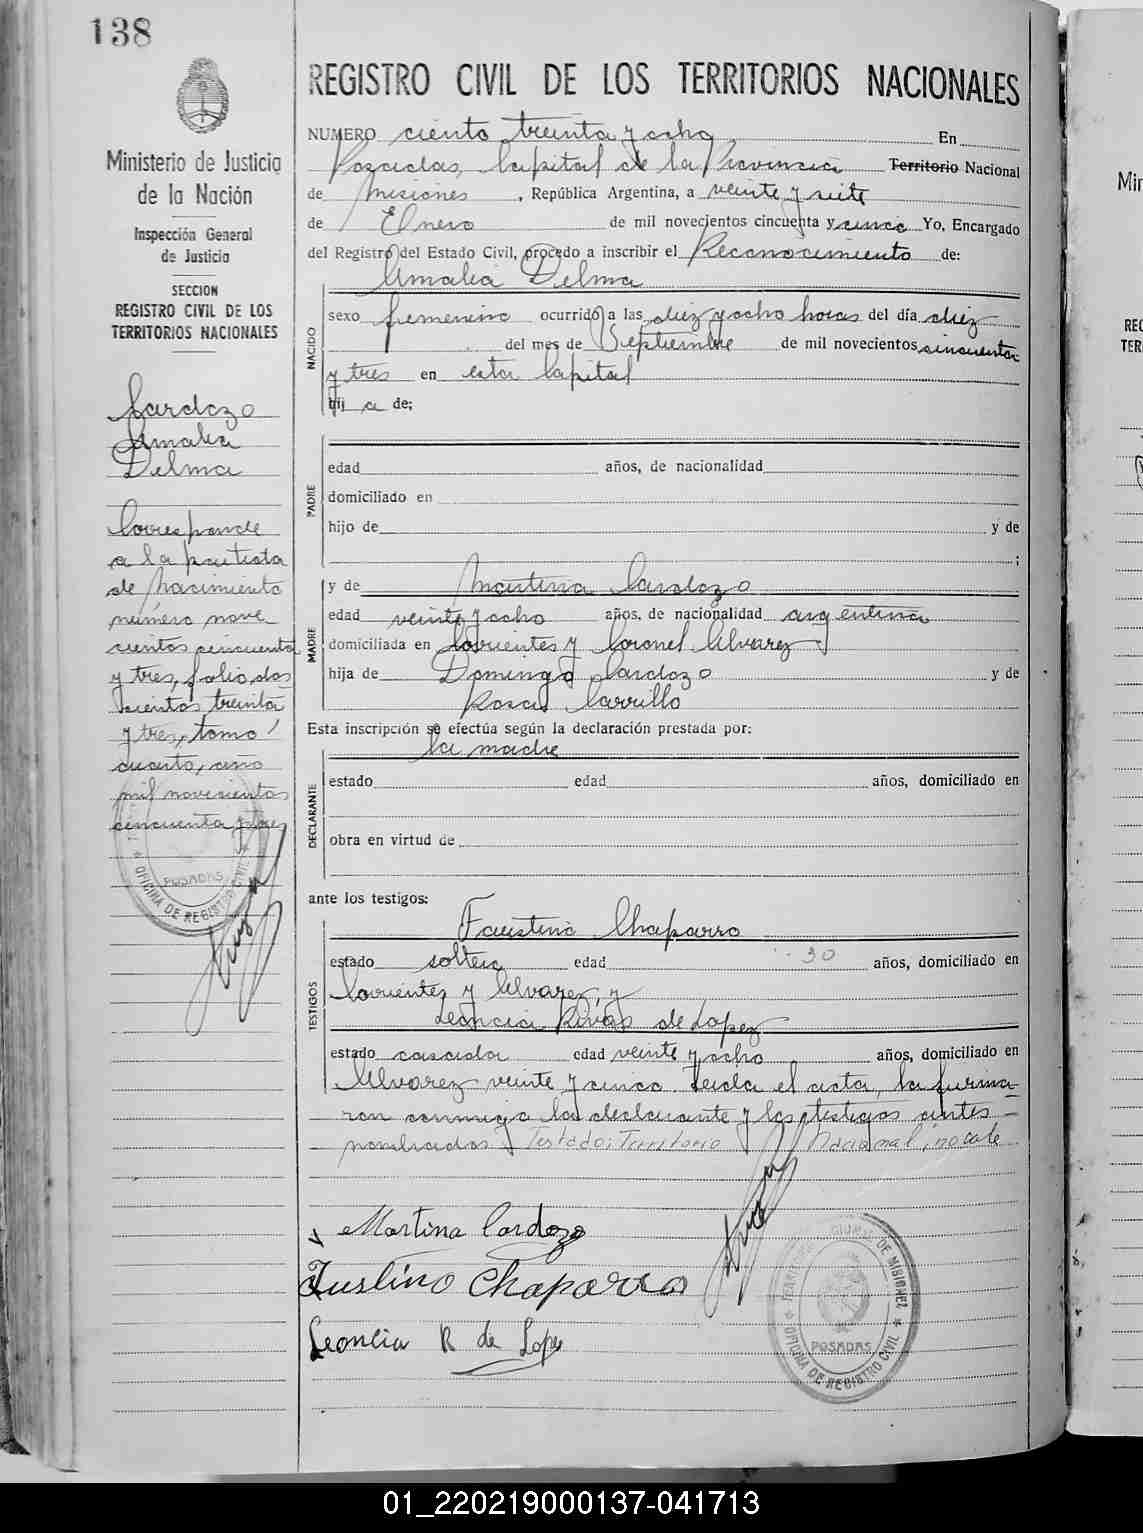 138
Ministerio de Justicia
de la Nación
Inspección General
de Justicia
SECCION
REGISTRO CIVIL DE LOS
TERRITORIOS NACIONALES
Cardozo
Amalia
Delma
Corresponde
a la partida
de Nacimiento
número nove_
cientos cincuenta
y tres, folio dos
cientos treinta
y tres, tomo
cuarto, año
mil novecientos
cincuenta y tres
POSADAS
OFICINA DE REGISTRO CIVIL
REGISTRO CIVIL DE LOS TERRITORIOS NACIONALES
NUMERO ciento treinta y ocho En
Posadas, Capital de la Provincia Territorio Nacional
de Misiones, República Argentina, a veinte y siete
de Enero de mil novecientos cincuenta y cinco Yo, Encargado
del Registro del Estado Civil, procedo a inscribir el Reconocimiento de:
Amalia Delma
NACIDO
sexo femenino ocurrido a las diez y ocho horas del día diez
del mes de Septiembre de mil novecientos cincuenta
y tres en esta Capital
hij a de:
PADRE
edad años, de nacionalidad
domiciliado en
hijo de y de
;
MADRE
y de Martina Cardozo
edad veinte y ocho años, de nacionalidad argentina
domiciliada en Corrientes y Coronel Alvarez
hija de Domingo Cardozo y de
Rosa Carrillo
Esta inscripción se efectúa según la declaración prestada por:
la madre
DECLARANTE
estado edad años, domiciliado en
obra en virtud de
ante los testigos:
TESTIGOS
Faustino Chaparro
estado soltero edad 30 años, domiciliado en
Corrientes y Alvarez, y
Leoncia Rivas de Lopez
estado casada edad veinte y ocho años, domiciliado en
Alvarez veinte y cinco. Leida el acta, la firma_
ron conmigo la declarante y los testigos antes_
nombrados. Testado: Territorio Nacional, no vale
Martina Cardozo
Fustino Chaparro
Leoncia R de Lope
MISIONES
POSADAS
OFICINA DE REGISTRO CIVIL
01_220219000137-041713